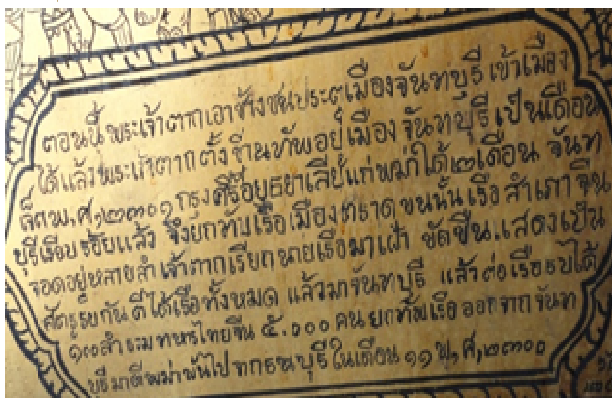 ตอนนี้ พระเจ้าตากเอาช้างชนประตูเมืองจันทบุรี เข้าเมือง
ได้ แล้วพระเจ้าตากตั้งร้านทัพอยู่เมือง จันทบุรี เป็นเดือน
พ.ศ,๒๓๐๑ กรุงศรีอยุธยาเสียแก่พม่าได้๒เดือน จันท
บุรีเรียบร้อยแล้ว จึงยกทัพเรือเมืองตราด ขนนั้น เรือ สำเภา จีน
จอดอยู่หลายลำ เจ้าตากเรียกนายเรือมาเฝ้า ขัดขืน.แสดงเป็น
ศัตรูรบกัน ตีได้เรือทั้งหมด แล้วมาจันทบุรี แล้วต่อเรือรบได้
๑๐๐ลำ รวมทหารไทยจีน ๕.๐๐๐ คน ยกทัพเรือ ออกจากจันท
บุรี มาตีพม่าพ้นไป ทกรธนบุรี ในเดือน ๑๑ พ,ศ,๒๓๐๐